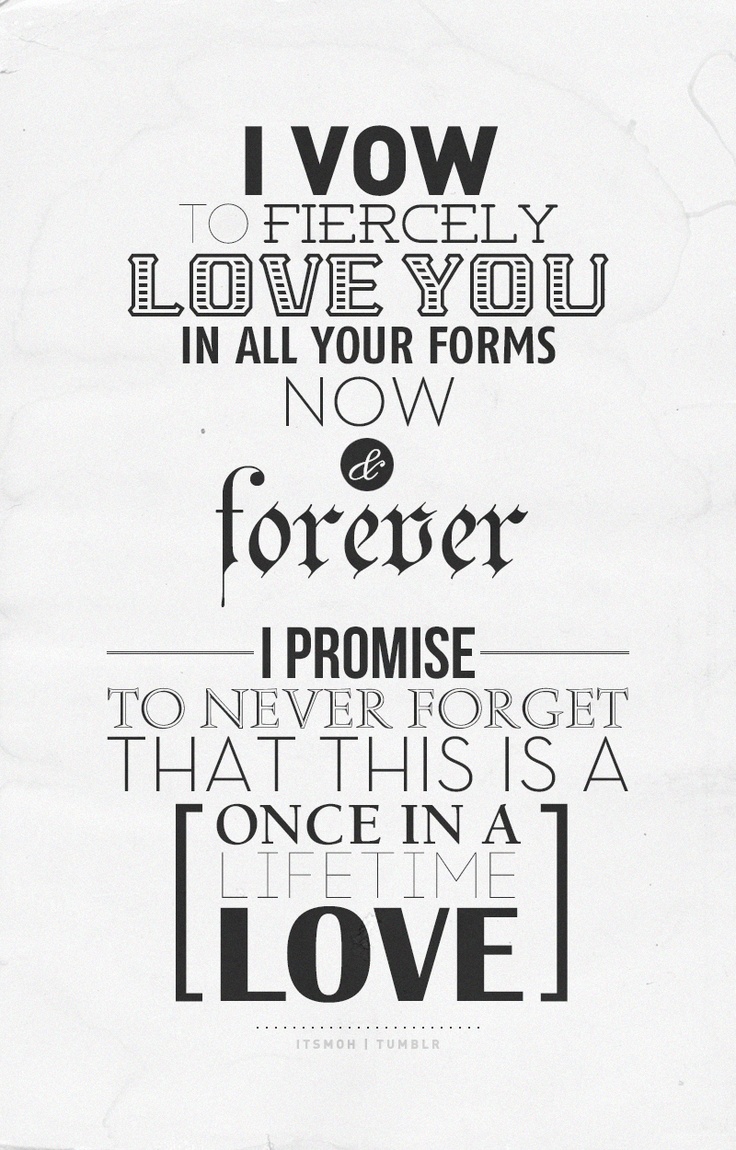 I VOW
TO FIERCELY
LOVE YOU
IN ALL YOUR FORMS
NOW
&
forever
I PROMISE
TO NEVER FORGET
THAT THIS IS A
[ONCE IN A
LIFETIME
LOVE]
ITSMOH | TUMBLR